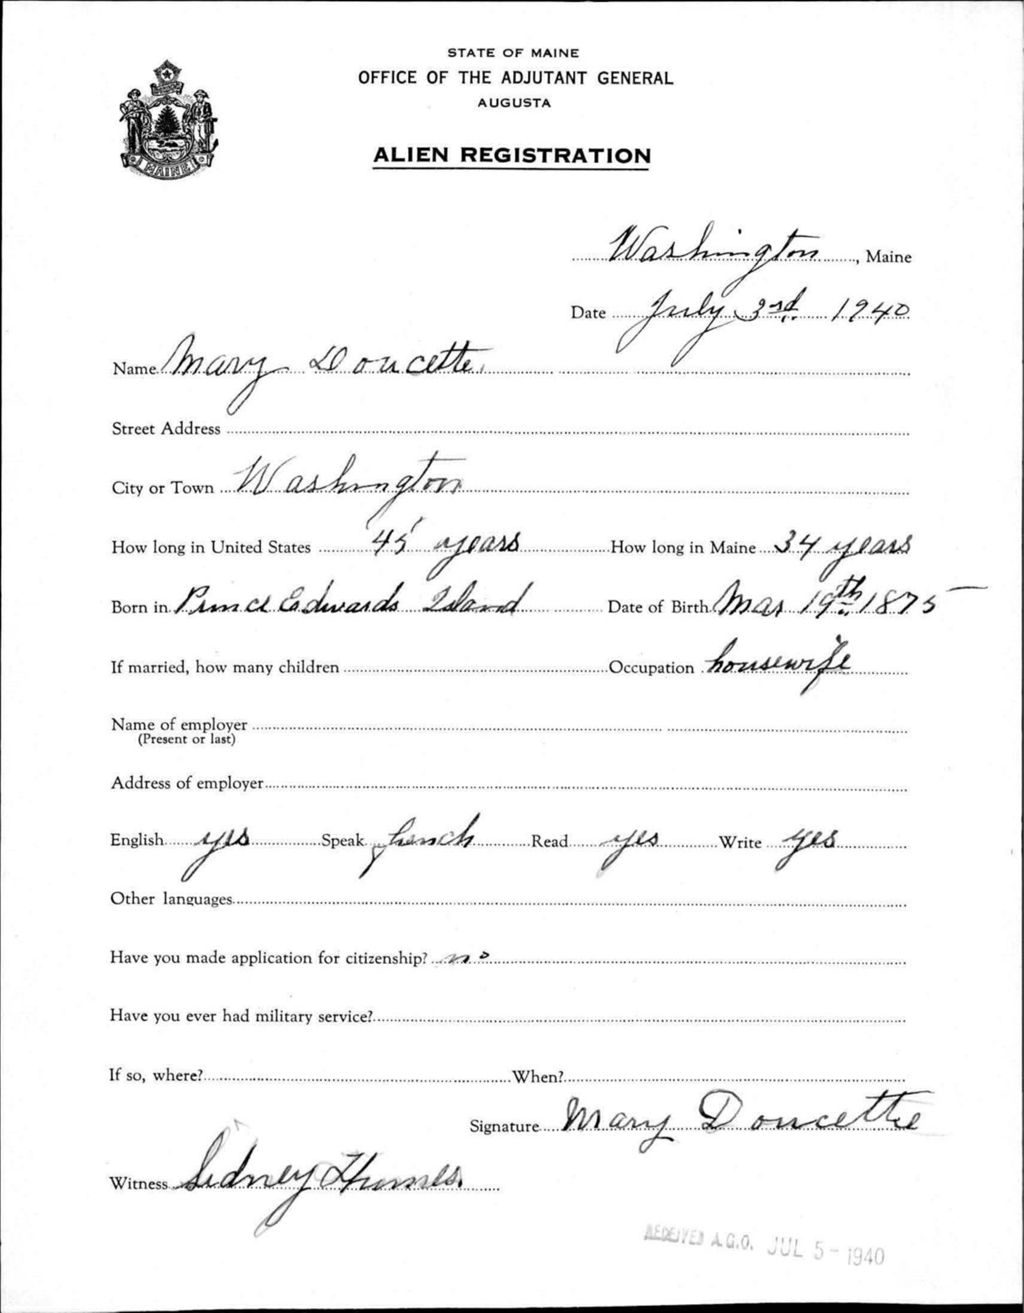 STATE OF MAINE
OFFICE OF THE ADJUTANT GENERAL
AUGUSTA
ALIEN REGISTRATION
MAINE
Washington, Maine
Date July 3rd. 1940
Name Mary Doucette.
Street Address
City or Town Washington
How long in United States 45 years How long in Maine 34 years
Born in Prince Edwards Island Date of Birth Mar 19th 1875
If married, how many children Occupation housewife
Name of employer
(Present or last)
Address of employer
English yes Speak french Read yes Write yes
Other languages
Have you made application for citizenship? no
Have you ever had military service?
If so, where? When?
Signature Mary Doucette
Witness Sidney
RECEIVED A.G.O. JUL 5 - 1940